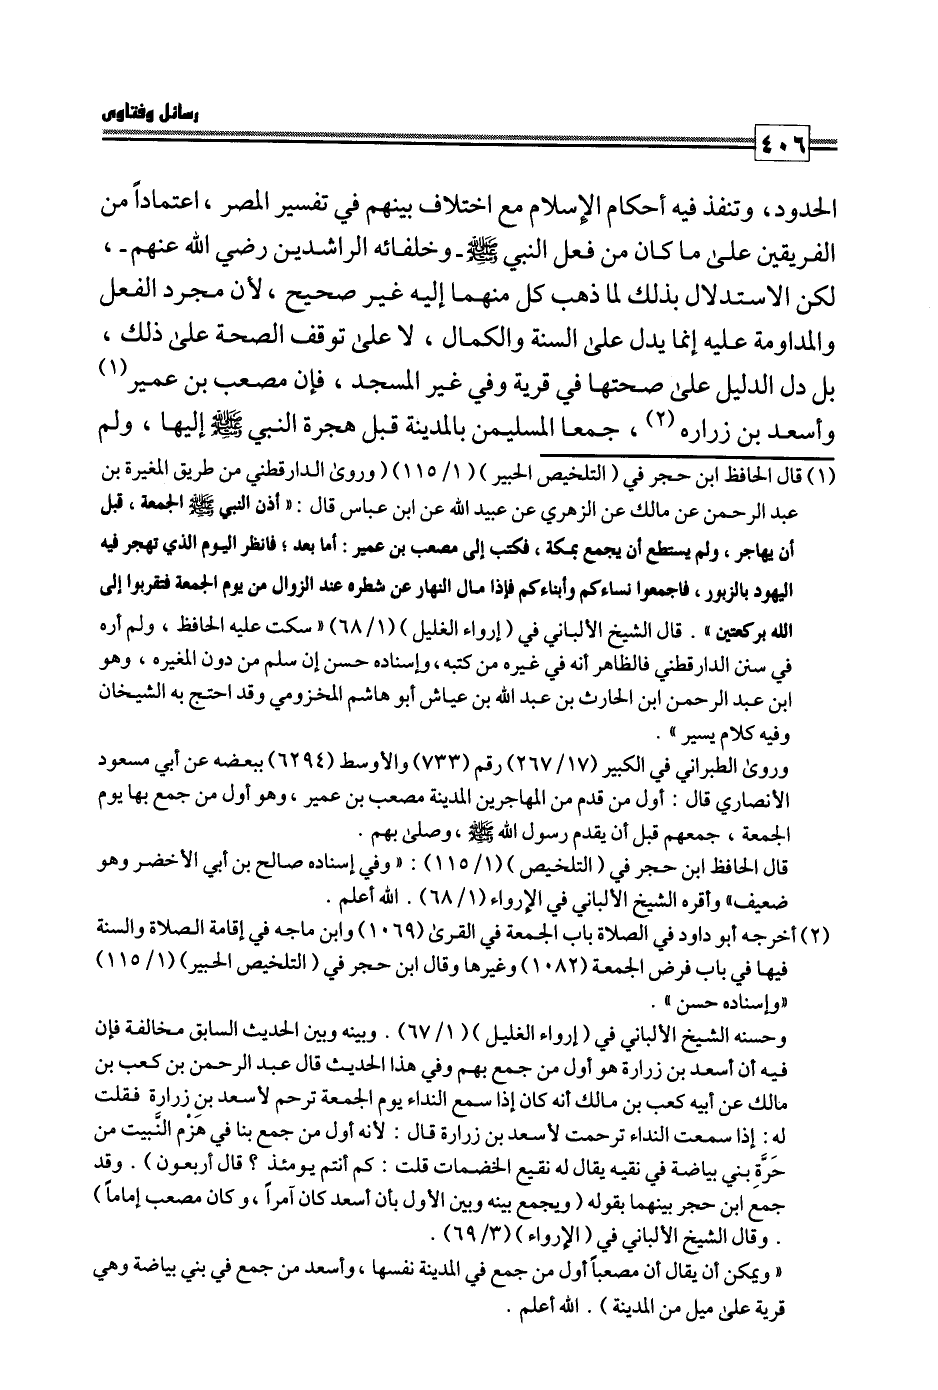 رسائل وفتاوى
٤٠٦
الحدود، وتنفذ فيه أحكام الإسلام مع اختلاف بينهم في تفسير المصر ، اعتماداً من
الفريقين على ما كان من فعل النبي ﷺ ـ وخلفائه الراشدين رضي الله عنهم ـ ،
لكن الاستدلال بذلك لما ذهب كل منهما إليه غير صحيح ، لأن مجرد الفعل
والمداومة عليه إنما يدل على السنة والكمال ، لا على توقف الصحة على ذلك ،
بل دل الدليل على صحتها في قرية وفي غير المسجد ، فإن مصعب بن عمير (١)
وأسعد بن زراره (٢) ، جمعا المسليمن بالمدينة قبل هجرة النبي ﷺ إليها ، ولم
(١) قال الحافظ ابن حجر في ( التلخيص الحبير ) (١/ ١١٥) ( وروى الدارقطني من طريق المغيرة بن
عبد الرحمن عن مالك عن الزهري عن عبيد الله عن ابن عباس قال : « أذن النبي ﷺ الجمعة ، قبل
أن يهاجر ، ولم يستطع أن يجمع بمكة ، فكتب إلى مصعب بن عمير : أما بعد ؛ فانظر اليوم الذي تهجر فيه
اليهود بالزبور ، فاجمعوا نساءكم وأبناءكم فإذا مال النهار عن شطره عند الزوال من يوم الجمعة فتقربوا إلى
الله بركعتين » . قال الشيخ الألباني في ( إرواء الغليل ) (١/ ٦٨) « سكت عليه الحافظ ، ولم أره
في سنن الدارقطني فالظاهر أنه في غيره من كتبه ، وإسناده حسن إن سلم من دون المغيره ، وهو
ابن عبد الرحمن ابن الحارث بن عبد الله بن عياش أبو هاشم المخزومي وقد احتج به الشيخان
وفيه كلام يسير » .
وروى الطبراني في الكبير (١٧/ ٢٦٧) رقم (٧٣٣) والأوسط (٦٢٩٤) ببعضه عن أبي مسعود
الأنصاري قال : أول من قدم من المهاجرين المدينة مصعب بن عمير ، وهو أول من جمع بها يوم
الجمعة ، جمعهم قبل أن يقدم رسول الله ﷺ ، وصلى بهم .
قال الحافظ ابن حجر في ( التلخيص ) (١/ ١١٥) : « وفي إسناده صالح بن أبي الأخضر وهو
ضعيف » وأقره الشيخ الألباني في الإرواء (١/ ٦٨) . الله أعلم .
(٢) أخرجه أبو داود في الصلاة باب الجمعة في القرى (١٠٦٩) وابن ماجه في إقامة الصلاة والسنة
فيها في باب فرض الجمعة (١٠٨٢) وغيرها وقال ابن حجر في ( التلخيص الحبير) (١/ ١١٥)
«وإسناده حسن » .
وحسنه الشيخ الألباني في ( إرواء الغليل ) (١/ ٦٧) . وبينه وبين الحديث السابق مخالفة فإن
فيه أن أسعد بن زرارة هو أول من جمع بهم وفي هذا الحديث قال عبد الرحمن بن كعب بن
مالك عن أبيه كعب بن مالك أنه كان إذا سمع النداء يوم الجمعة ترحم لأسعد بن زرارة فقلت
له : إذا سمعت النداء ترحمت لأسعد بن زرارة قال : لأنه أول من جمع بنا في هَزْم النَّبيت من
حَرَّةِ بني بياضة في نقيه يقال له نقيع الخضمات قلت : كم أنتم يومئذ ؟ قال أربعون ) . وقد
جمع ابن حجر بينهما بقوله ( ويجمع بينه وبين الأول بأن أسعد كان آمراً ، و كان مصعب إماماً )
. وقال الشيخ الألباني في ( الإرواء ) (٣/ ٦٩) .
« ويمكن أن يقال أن مصعباً أول من جمع في المدينة نفسها ، وأسعد من جمع في بني بياضة وهي
قرية على ميل من المدينة ) . الله أعلم .